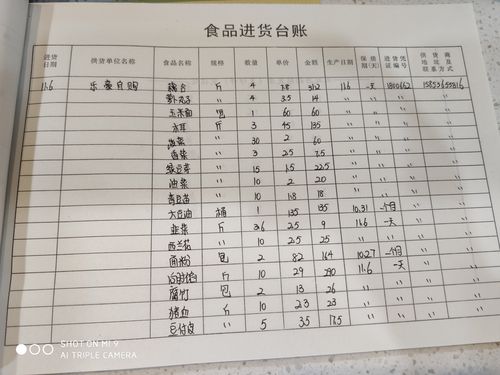 食品进货台账
进货日期 供货单位名称 食品名称 规格 数量 单价 金额 生产日期 保质期(天) 进货凭证编号 供货商地址及联系方式
11.6 斤 4 11.6 一天
〃 4 3.5 14 〃 〃 〃 〃
玉米面 1 60 60 〃 〃 〃 〃
木耳 斤 3 45 135 〃 〃 〃 〃
〃 30 2 60 〃 〃 〃 〃
香菜 〃 3 2.5 7.5 〃 〃 〃 〃
绿豆芽 〃 15 1.5 22.5 〃 〃 〃 〃
油菜 〃 10 2 20 〃 〃 〃 〃
〃 10 1.8 18 〃 〃 〃 〃
大豆油 桶 1 135 135 10.31 一个月 〃 〃
韭菜 斤 3.6 2.5 9 11.6 一天 〃 〃
西兰花 〃 10 2.5 25 〃 〃 〃 〃
包 2 82 164 10.27 一个月 〃 〃
斤 10 29 290 11.6 一天 〃 〃
腐竹 包 2 13 26 〃 〃 〃 〃
猪血 斤 10 2.3 23 〃 〃 〃 〃
豆付皮 〃 5 3.5 17.5 〃 〃 〃 〃
SHOT ON MI 9
AI TRIPLE CAMERA